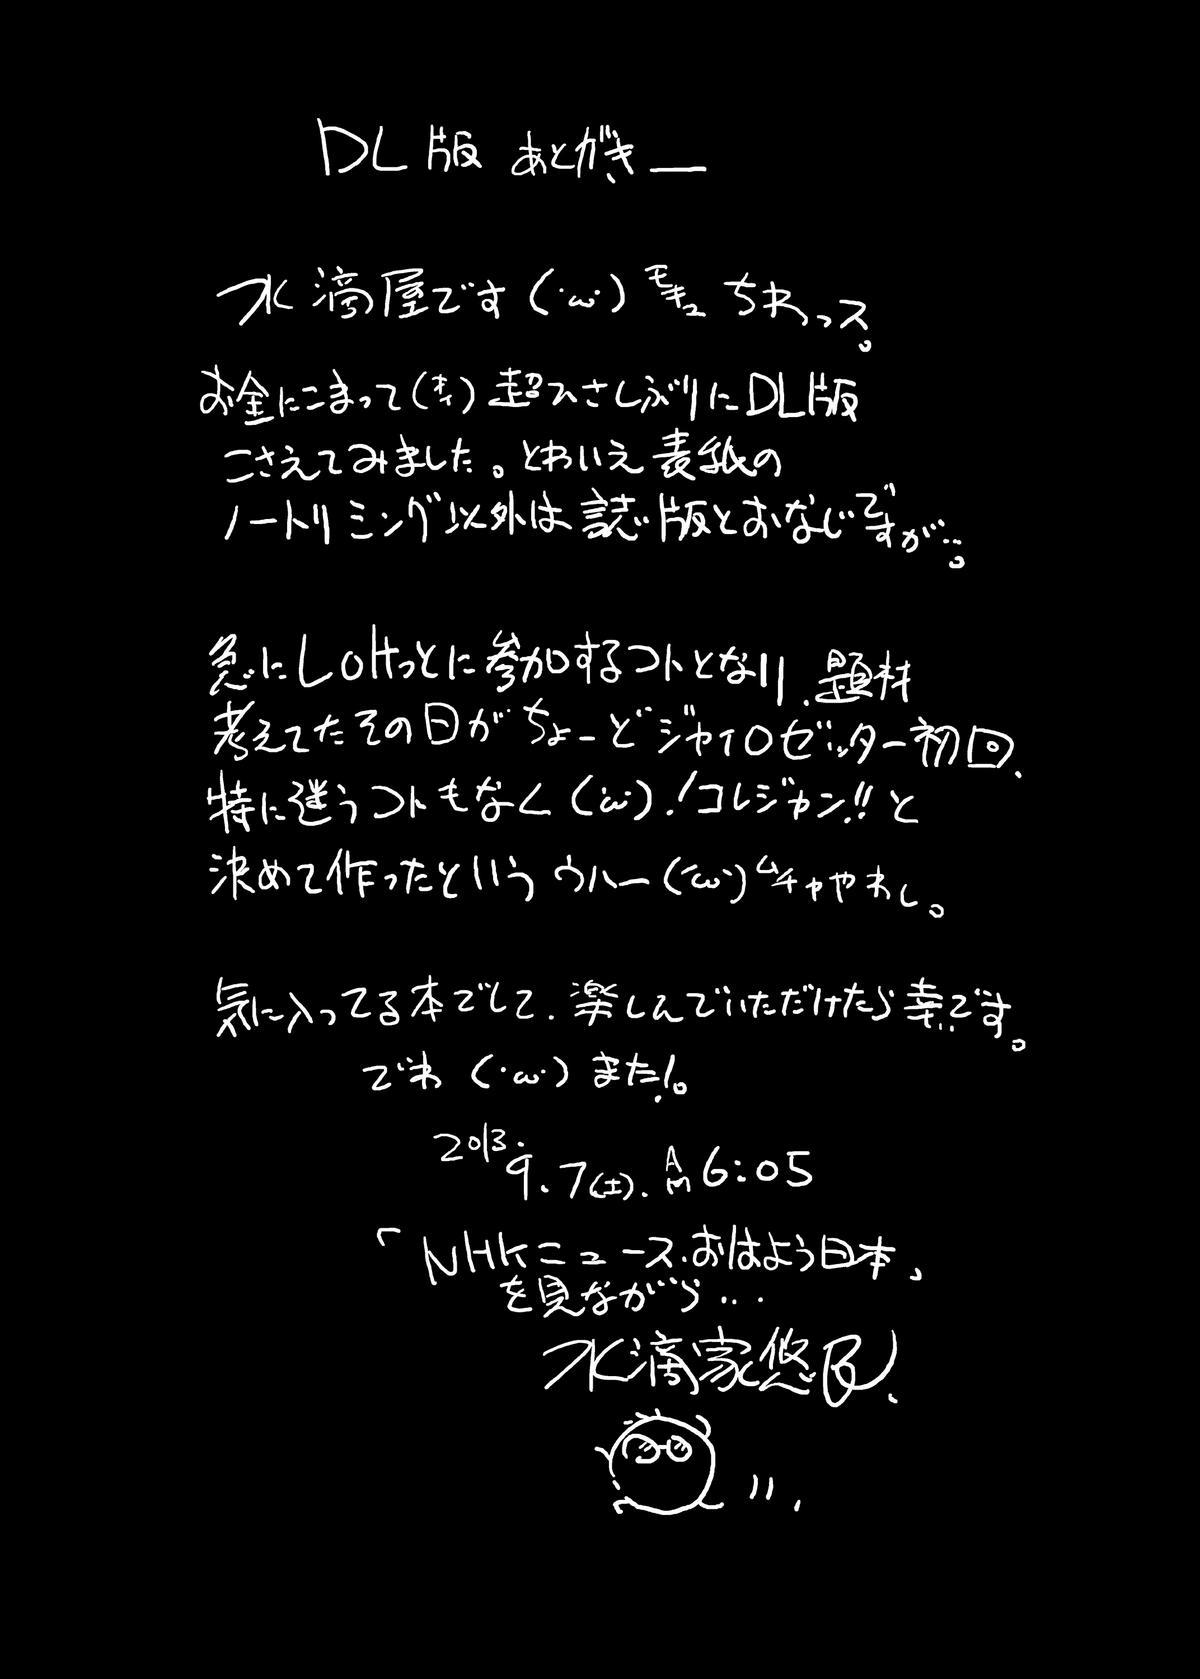 DL版 あとがきー
水滴屋です(・ω・)モキュ ちわっス。
お金にこまって(オイ)超ひさしぶりにDL版
こさえてみました。とわいえ表紙の
ノートリミング以外は誌版とおなじですが…。
急にしohtっとに参加するコトとなり、題材
考えてたその日がちょーどジャイロゼッター初回、
特に迷うコトもなく(・ω・)!コレジャン!!と
決めて作ったというウハー(・ω・)ムチャやわし。
気に入ってる本でして、楽しんでいただけたら幸です。
でわ(・ω・)また!。
2013.9.7(土).AM6:05
「NHKニュース.おはよう日本」
を見ながら...
水滴家悠